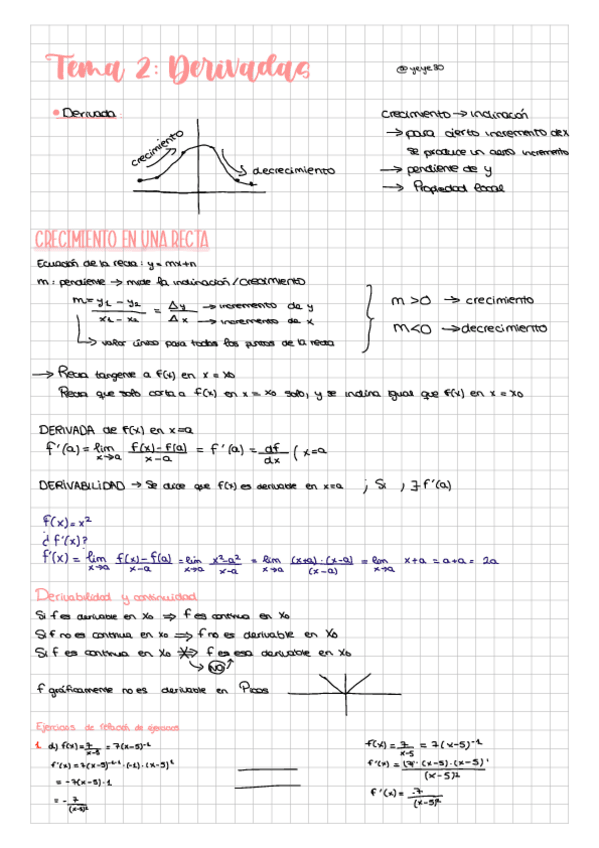 Tema 2: Derivadas
@yeye80
• Derivada
crecimiento
decrecimiento
crecimiento → inclinación
→ para cierto incremento de x
se produce un cierto incremento
→ pendiente de y
→ Propiedad local
CRECIMIENTO EN UNA RECTA
Ecuación de la recta: y = mx+n
m: pendiente → mide la inclinación/crecimiento
m = y₁ - y₂ / x₁ - x₂ = Δy / Δx → incremento de y
→ incremento de x
→ valor único para todos los puntos de la recta
m > 0 → crecimiento
m < 0 → decrecimiento
→ Recta tangente a f(x) en x = x₀
Recta que solo corta a f(x) en x = x₀ solo, y se inclina igual que f(x) en x = x₀
DERIVADA de f(x) en x=a
f'(a) = lim x→a f(x)-f(a) / x-a = f'(a) = df/dx ( x=a
DERIVABILIDAD → Se dice que f(x) es derivable en x=a ; Si , ∃ f'(a)
f(x) = x²
¿f'(x)?
f'(x) = lim x→a f(x)-f(a) / x-a = lim x→a x²-a² / x-a = lim x→a (x+a)·(x-a) / (x-a) = lim x→a x+a = a+a = 2a
Derivabilidad y continuidad
Si f es derivable en x₀ ⇒ f es continua en x₀
Si f no es continua en x₀ ⇒ f no es derivable en x₀
Si f es continua en x₀ ⇏ f es derivable en x₀
NO
f gráficamente no es derivable en Picos
Ejercicios de relación de ejercicios
1. d) f(x) = 7/x-5 = 7(x-5)⁻¹
= -7(x-5)·1
= - 7/(x-5)²
f(x) = 7/x-5 = 7(x-5)⁻¹
f'(x) = (7)'·(x-5)·(x-5)' / (x-5)²
f'(x) = -7/(x-5)²